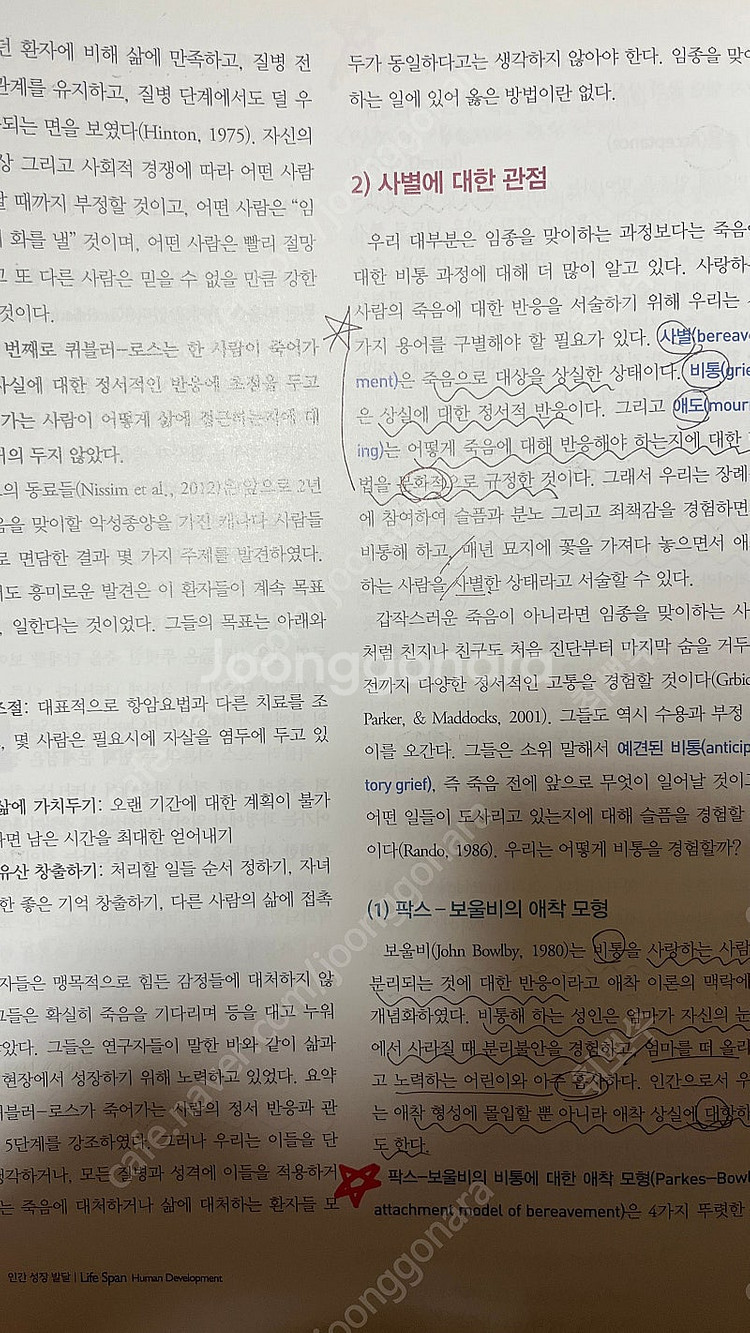 던 환자에 비해 삶에 만족하고, 질병 전
관계를 유지하고, 질병 단계에서도 덜 우
되는 면을 보였다(Hinton, 1975). 자신의
상 그리고 사회적 경쟁에 따라 어떤 사람
때까지 부정할 것이고, 어떤 사람은 “임
화를 낼” 것이며, 어떤 사람은 빨리 절망
고 또 다른 사람은 믿을 수 없을 만큼 강한
것이다.
번째로 퀴블러-로스는 한 사람이 죽어가
사실에 대한 정서적인 반응에 초점을 두고
가는 사람이 어떻게 삶에 접근하는지에 대
거의 두지 않았다.
의 동료들(Nissim et al., 2012)은 앞으로 2년
음을 맞이할 악성종양을 가진 캐나다 사람들
로 면담한 결과 몇 가지 주제를 발견하였다.
도 흥미로운 발견은 이 환자들이 계속 목표
, 일한다는 것이었다. 그들의 목표는 아래와
조절: 대표적으로 항암요법과 다른 치료를 조
, 몇 사람은 필요시에 자살을 염두에 두고 있
삶에 가치두기: 오랜 기간에 대한 계획이 불가
하면 남은 시간을 최대한 얻어내기
유산 창출하기: 처리할 일들 순서 정하기, 자녀
한 좋은 기억 창출하기, 다른 사람의 삶에 접촉
자들은 맹목적으로 힘든 감정들에 대처하지 않
그들은 확실히 죽음을 기다리며 등을 대고 누워
않았다. 그들은 연구자들이 말한 바와 같이 삶과
현장에서 성장하기 위해 노력하고 있었다. 요약
퀴블러-로스가 죽어가는 사람의 정서 반응과 관
5단계를 강조하였다. 그러나 우리는 이들을 단
생각하거나, 모든 질병과 성격에 이들을 적용하거
는 죽음에 대처하거나 삶에 대처하는 환자들 모
인간 성장 발달 | Life Span Human Development
두가 동일하다고는 생각하지 않아야 한다. 임종을 맞이
하는 일에 있어 옳은 방법이란 없다.
2) 사별에 대한 관점
우리 대부분은 임종을 맞이하는 과정보다는 죽음에
대한 비통 과정에 대해 더 많이 알고 있다. 사랑하
사람의 죽음에 대한 반응을 서술하기 위해 우리는
가지 용어를 구별해야 할 필요가 있다. 사별(bereave
ment)은 죽음으로 대상을 상실한 상태이다. 비통(grie
은 상실에 대한 정서적 반응이다. 그리고 애도(mour
ing)는 어떻게 죽음에 대해 반응해야 하는지에 대한
법을 문화적으로 규정한 것이다. 그래서 우리는 장례
에 참여하여 슬픔과 분노 그리고 죄책감을 경험하면
비통해 하고, 매년 묘지에 꽃을 가져다 놓으면서 애
하는 사람을 사별한 상태라고 서술할 수 있다.
갑작스러운 죽음이 아니라면 임종을 맞이하는 사
처럼 친지나 친구도 처음 진단부터 마지막 숨을 거두
전까지 다양한 정서적인 고통을 경험할 것이다(Grbic
Parker, & Maddocks, 2001). 그들도 역시 수용과 부정
이를 오간다. 그들은 소위 말해서 예견된 비통(anticip
tory grief), 즉 죽음 전에 앞으로 무엇이 일어날 것이고
어떤 일들이 도사리고 있는지에 대해 슬픔을 경험할
이다(Rando, 1986). 우리는 어떻게 비통을 경험할까?
(1) 팍스-보울비의 애착 모형
보울비(John Bowlby, 1980)는 비통을 사랑하는 사람
분리되는 것에 대한 반응이라고 애착 이론의 맥락에
개념화하였다. 비통해 하는 성인은 엄마가 자신의 눈
에서 사라질 때 분리불안을 경험하고, 엄마를 떠 올리
고 노력하는 어린이와 아주 흡사하다. 인간으로서 우
는 애착 형성에 몰입할 뿐 아니라 애착 상실에 대항하
도 한다.
팍스-보울비의 비통에 대한 애착 모형(Parkes-Bowl
attachment model of bereavement)은 4가지 뚜렷한
Joonggonara
cafe.naver.com/joonggonara
joonggonara